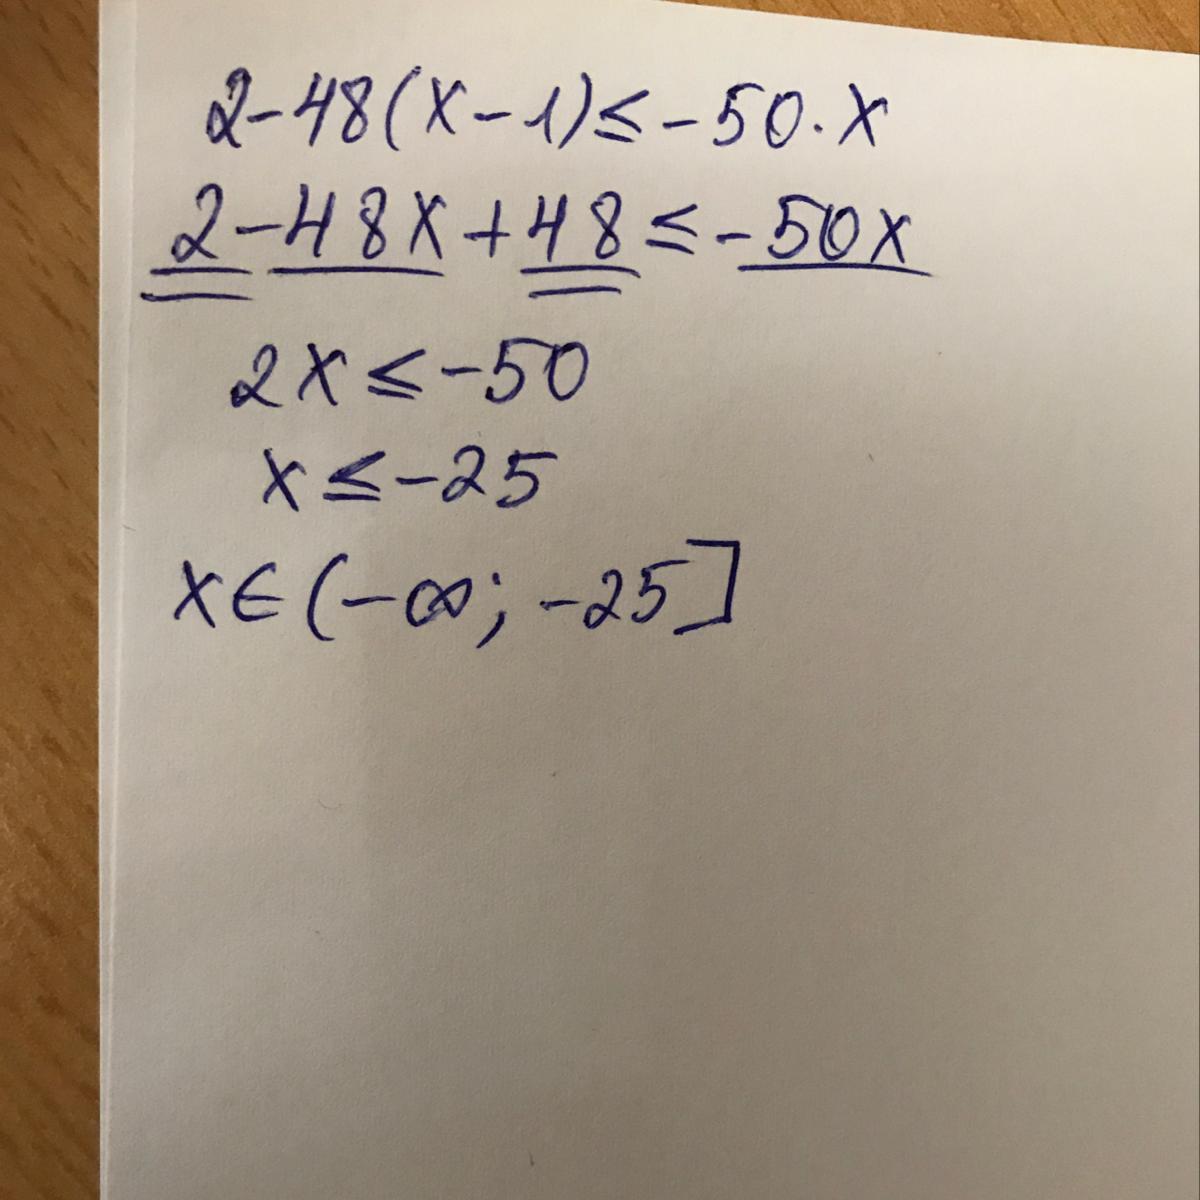 2-48(x-1)≤-50·x
2-48x+48≤-50x
2x≤-50
x≤-25
x∈(-∞; -25]